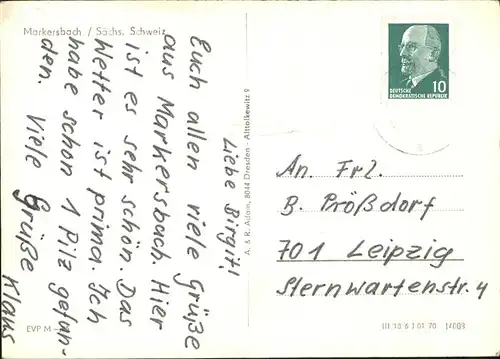 Markersbach / Sächs. Schweiz
Liebe Birgit!
Euch allen viele Grüße
aus Markersbach. Hier
ist es sehr schön. Das
Wetter ist prima. Ich
habe schon 1 Pilz gefun-
den. Viele Grüße Klaus
EVP M
A. & R. Adam, 8044 Dresden - Alttolkewitz 9
10
DEUTSCHE
DEMOKRATISCHE REPUBLIK
An. Frl.
B. Prößdorf
701 Leipzig
Sternwartenstr. 4
III 18 6 J 01 70